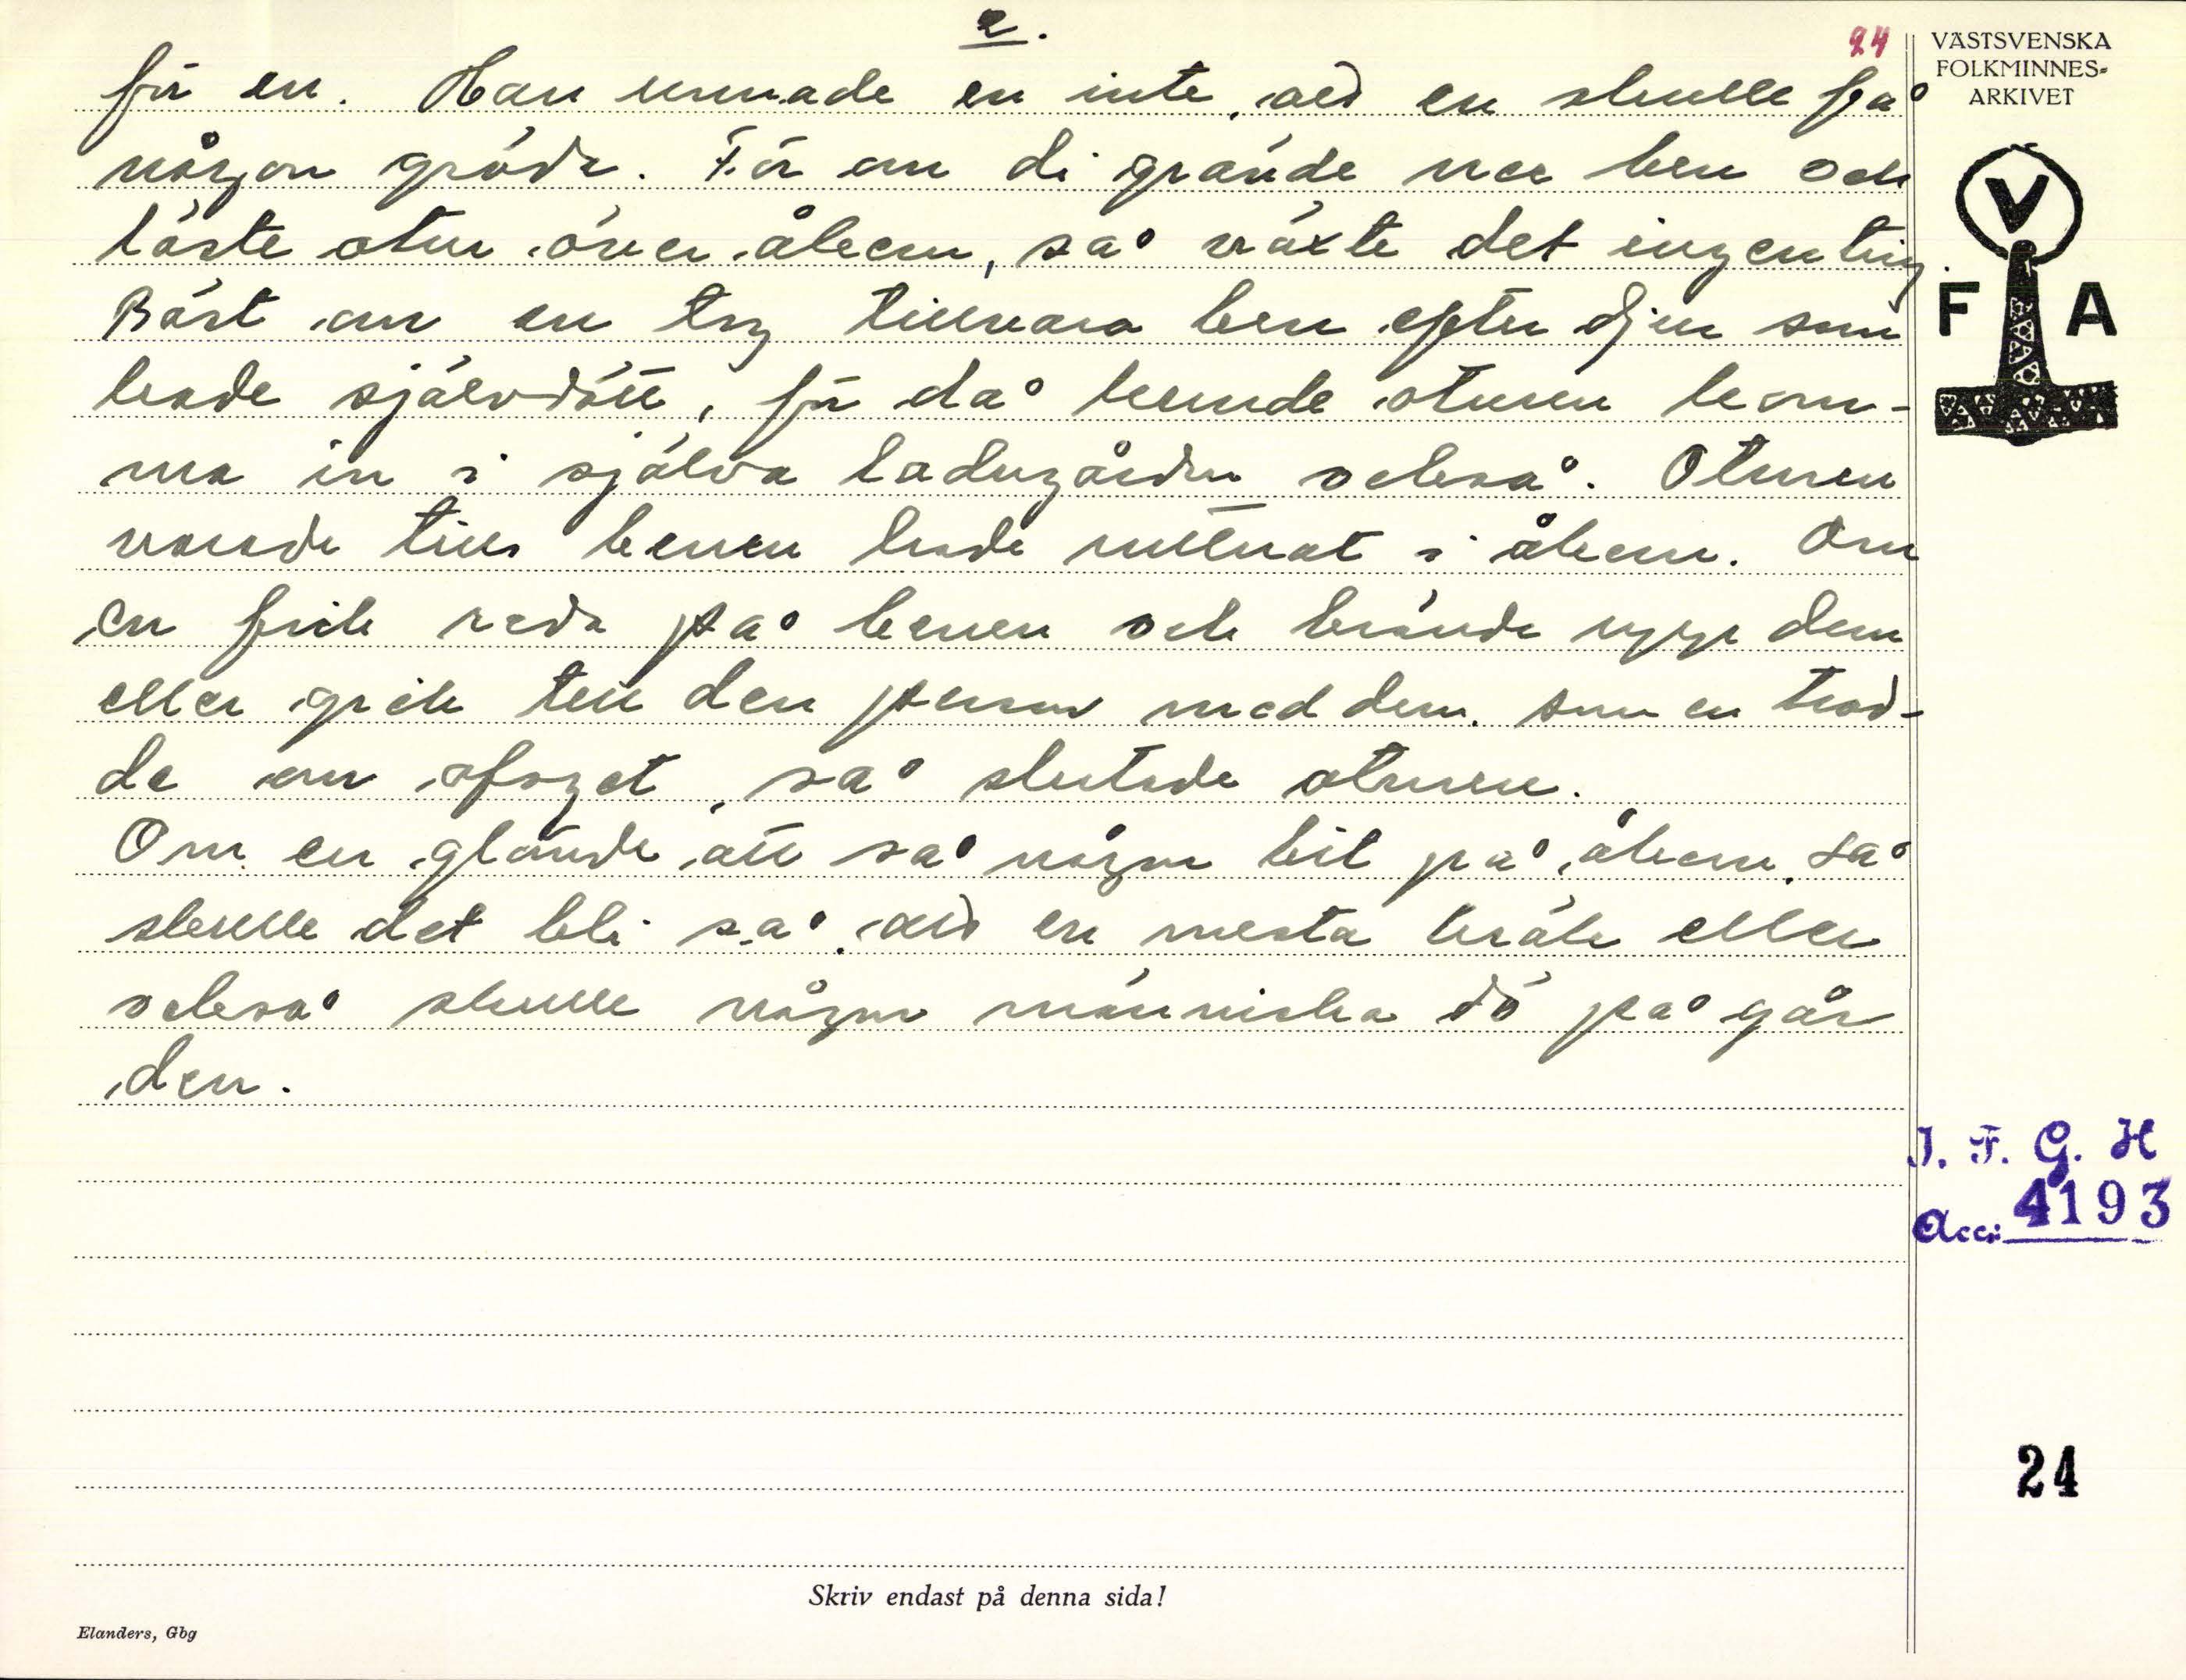 2.
24
för en. Han unnade en inte, att en skulle få
någon gröda. För om di grävde ner ben och
läste otur över åkern, så växte det ingenting.
Bäst om en tog tillvara ben efter djur som
hade självdött, för då kunde oturen kom-
ma in i själva ladugården också. Oturen
varade tills benen hade ruttnat i åkern. Om
en fick reda på benen och brände upp dem
eller gick till den person med dem, som en trod-
de om ofoget, så slutade oturen.
Om en glömde att så någon bit på åkern, så
skulle det bli så, att en mesta kräk eller
också skulle någon människa dö på går
den.
VÄSTSVENSKA
FOLKMINNES-
ARKIVET
V
F A
I. F. G. H
Acc: 4193
24
Skriv endast på denna sida!
Elanders, Gbg